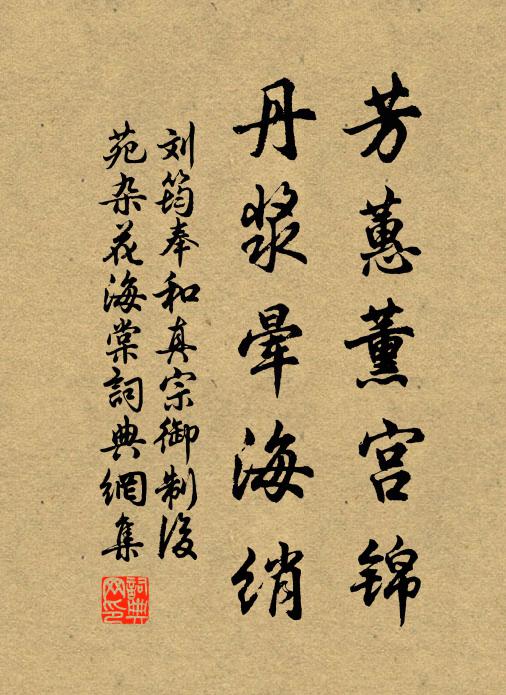 芳蕙薰宫锦
丹浆晕海绡
刘筠奉和真宗御制后
苑杂花海棠詞典網集
詞典网印